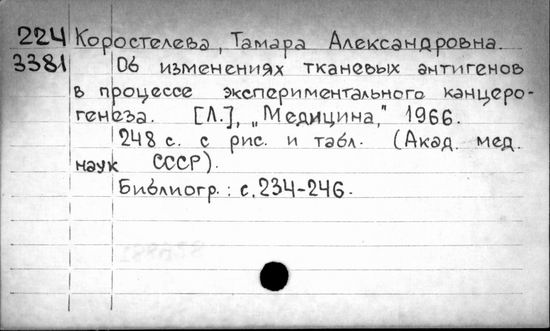 224 Коростелева, Тамара Александровна.
3381 Об изменениях тканевых антигенов
в процессе экспериментального канцеро-
генеза. [Л.], „Медицина," 1966.
248 с. с рис. и табл. (Акад. мед.
наук СССР).
Библиогр.: с. 234-246.